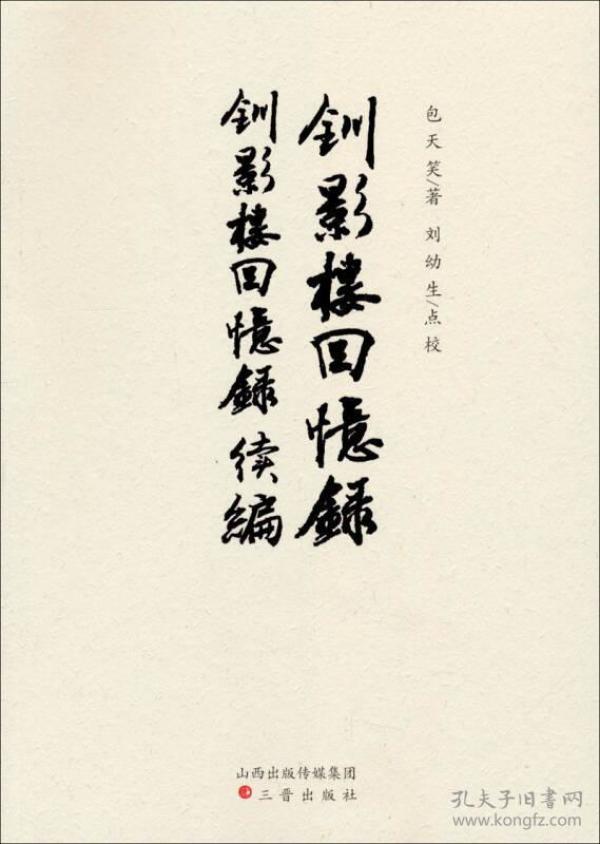 包天笑/著 刘幼生/点校
釧影樓回憶錄
釧影樓回憶錄续編
山西出版传媒集团
三晋出版社
孔夫子旧書网
www.kongfz.com